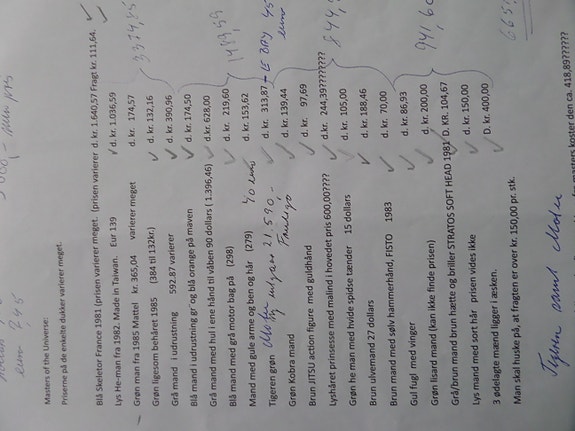 Masters of the Universe:
Priserne på de enkelte dukker varierer meget.
Blå Skeletor France 1981 (prisen varierer meget d. kr. 1.640,57 Fragt kr. 111,64.
Lys He-man fra 1982. Made in Taiwan. Eur 139 d. kr. 1.036,59
Grøn man fra 1985 Mattel kr. 365,04 varierer meget d. kr. 174,57
Grøn ligesom behåret 1985 (384 til 132kr.) d. kr. 132,16
Grå mand i udrustning 592.87 varierer d. kr. 390,96
Blå mand i udrustning gr og blå orange på maven d. kr. 174,50
Grå mand med hul i ene hånd til våben 90 dollars ( 1.396,46) d. kr. 628,00
Blå mand med grå motor bag på (298) d. kr. 219,60
Mand med gule arme og ben og hår (279) 40 d. kr. 153,62
Tigeren grøn 21.590 - d.kr. 313,87 + EBAY 45
Grøn Kobra mand d. kr. 139,44
Brun JITSU action figure med guldhånd d. kr. 97,69
Lyshåret prinsesse med malind i hovedet pris 600,00???? d.kr. 244,39????????
Grøn he man med hvide spidse tænder 15 dollars d. kr. 105,00
Brun ulvemand 27 dollars d. kr. 188,46
Brun mand med sølv hammerhånd, FISTO 1983 d. kr. 70,00
Gul fugl med vinger d. kr. 86,93
Grøn lisard mand (kan ikke finde prisen) d. kr. 200,00
Grå/brun mand brun hætte og briller STRATOS SOFT HEAD 1981 D. KR. 104,67
Lys mand med sort hår prisen vides ikke d. kr. 150,00
3 ødelagte mænd ligger i æsken. D. kr. 400,00
Man skal huske på, at fragten er over kr. 150,00 pr. stk.
masters koster den ca. 418,89??????
3374,85
844,
941,60
665,
Tigeren samt